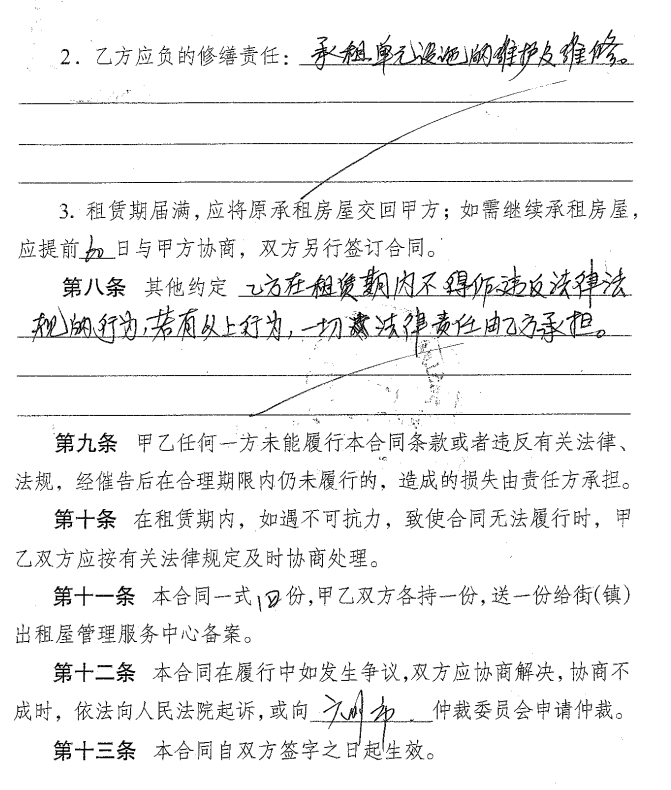 2. 乙方应负的修缮责任：承租单元设施的维护及维修。
3. 租赁期届满，应将原承租房屋交回甲方；如需继续承租房屋，
应提前 日与甲方协商，双方另行签订合同。
第八条 其他约定 乙方在租赁期内不得作违反法律法
规的行为，若有以上行为，一切 法律责任由乙方承担。
第九条 甲乙任何一方未能履行本合同条款或者违反有关法律、
法规，经催告后在合理期限内仍未履行的，造成的损失由责任方承担。
第十条 在租赁期内，如遇不可抗力，致使合同无法履行时，甲
乙双方应按有关法律规定及时协商处理。
第十一条 本合同一式四份，甲乙双方各持一份，送一份给街(镇)
出租屋管理服务中心备案。
第十二条 本合同在履行中如发生争议，双方应协商解决，协商不
成时，依法向人民法院起诉，或向 广州市 仲裁委员会申请仲裁。
第十三条 本合同自双方签字之日起生效。